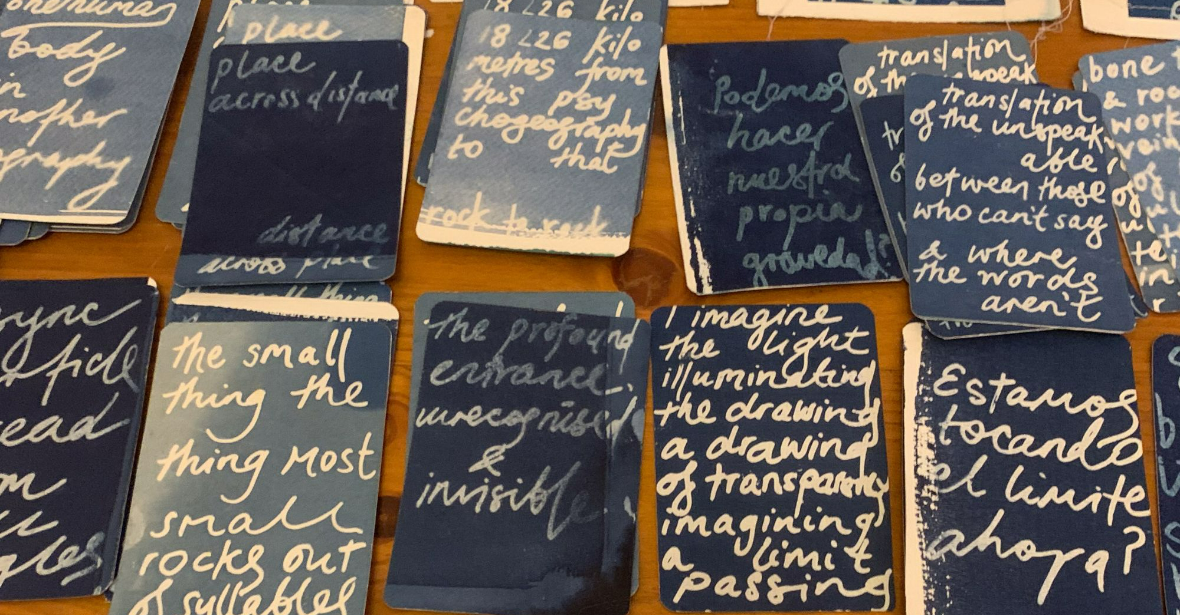 body
in
place
place
across distance
distance
across place
18 L26 kilo
18 L26 kilo
metres from
this psy
chogeography
to that
rock to rock
Podemos
hacer
nuestra
propia
gravedad?
translation
of the unspeak
translation
of the unspeak
able
between those
who can't say
& where
the words
aren't
bone
& roc
work
vein
of
ync
ficle
ead
the small
thing the
thing most
small
rocks out
of syllables
the profound
entrance
unrecognised
&
invisible
I imagine
the light
illuminating
the drawing
a drawing
of transparency
imagining
a limit
passing
Estamos
tocando
el limite
ahora?